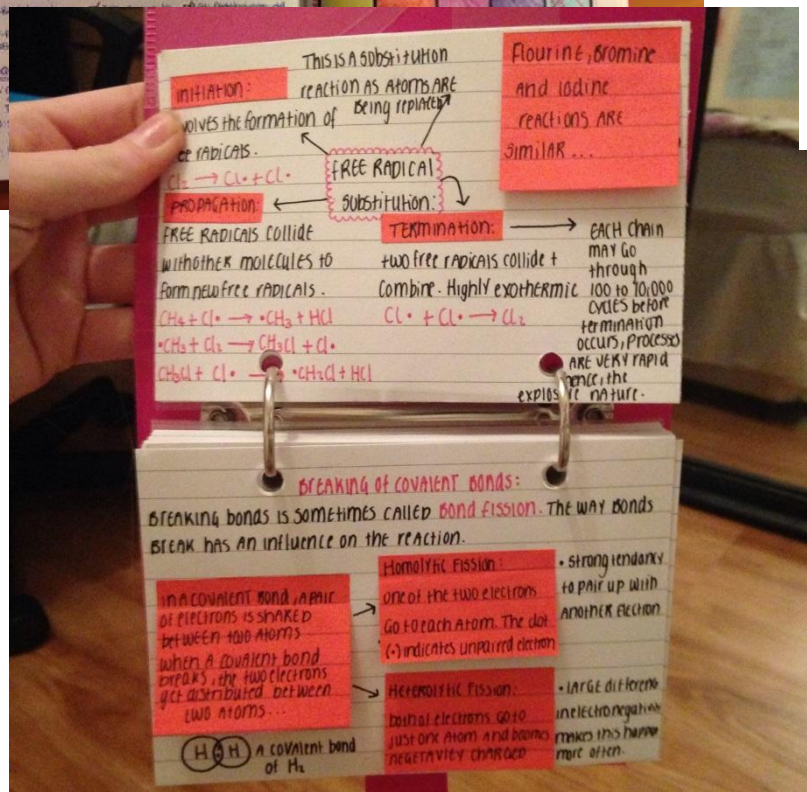 THIS IS A SUBSTITUTION
REACTION AS ATOMS ARE
BEING REPLACED
INITIATION:
VOLVES THE FORMATION OF
EE RADICALS.
Cl₂ → Cl• + Cl•
FREE RADICAL
SUBSTITUTION:
FLOURINE, BROMINE
AND IODINE
REACTIONS ARE
SIMILAR ...
PROPAGATION:
FREE RADICALS COLLIDE
WITH OTHER MOLECULES TO
FORM NEW FREE RADICALS.
CH₄ + Cl• → •CH₃ + HCl
•CH₃ + Cl₂ → CH₃Cl + Cl•
CH₃Cl + Cl• → •CH₂Cl + HCl
TERMINATION:
TWO FREE RADICALS COLLIDE +
COMBINE. HIGHLY EXOTHERMIC
Cl• + Cl• → Cl₂
EACH CHAIN
MAY GO
THROUGH
100 TO 10,000
CYCLES BEFORE
TERMINATION
OCCURS, PROCESSES
ARE VERY RAPID
HENCE, THE
EXPLOSIVE NATURE.
BREAKING OF COVALENT BONDS:
BREAKING BONDS IS SOMETIMES CALLED BOND FISSION. THE WAY BONDS
BREAK HAS AN INFLUENCE ON THE REACTION.
IN A COVALENT BOND, A PAIR
OF ELECTRONS IS SHARED
BETWEEN TWO ATOMS
WHEN A COVALENT BOND
BREAKS, THE TWO ELECTRONS
GET DISTRIBUTED BETWEEN
TWO ATOMS...
H H A COVALENT BOND
OF H₂
HOMOLYTIC FISSION:
ONE OF THE TWO ELECTRONS
GO TO EACH ATOM. THE DOT
(•) INDICATES UNPAIRED ELECTRON
• STRONG TENDANCY
TO PAIR UP WITH
ANOTHER ELECTRON
HETEROLYTIC FISSION:
BOTH OF ELECTRONS GO TO
JUST ONE ATOM AND BECOMES
NEGETAVLY CHARGED
• LARGE DIFFERENC
IN ELECTRONEGATIVI
MAKES THIS HAPPEN
MORE OFTEN.